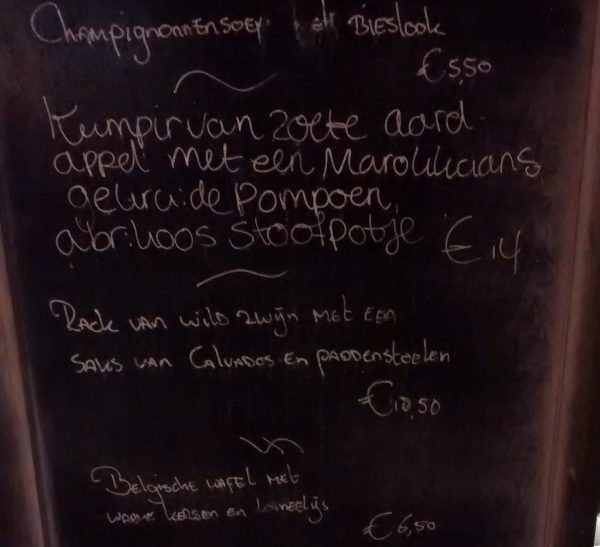 Champignonnensoep met Bieslook
€5,50
Kumpir van zoete aard-
appel met een Marokkaans
gekruide Pompoen,
abrikoos stoofpotje €14
Rack van wild zwijn met een
saus van Calvados en paddenstoelen
Belgische wafel met
warme kersen en kaneelijs
€6,50